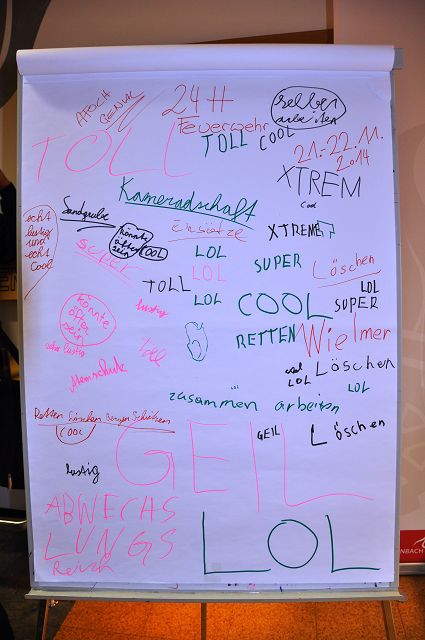 24H
AFOCH
GENIAL
selber
arbeiten
Feuerwehr
TOLL
TOLL
COOL
21.-22.11.
2014
XTREM
Cool
Kameradschaft
echt
lustig
und
echt
Cool
Einsätze
XTREME
könnte
öfter
sein
COOL
SUPER
LOL
LOL
SUPER
Löschen
TOLL
LOL
LOL
SUPER
könnte
öfter
sein
lustig
COOL
RETTEN
Wielmer
sehr lustig
toll
Atemschutz
cool
LOL
Löschen
LOL
LOL
zusammen arbeiten
Retten Löschen Bergen Schützen
COOL
GEIL
GEIL
Löschen
lustig
ABWECHS
LUNGS
Reich
LOL
NBACH